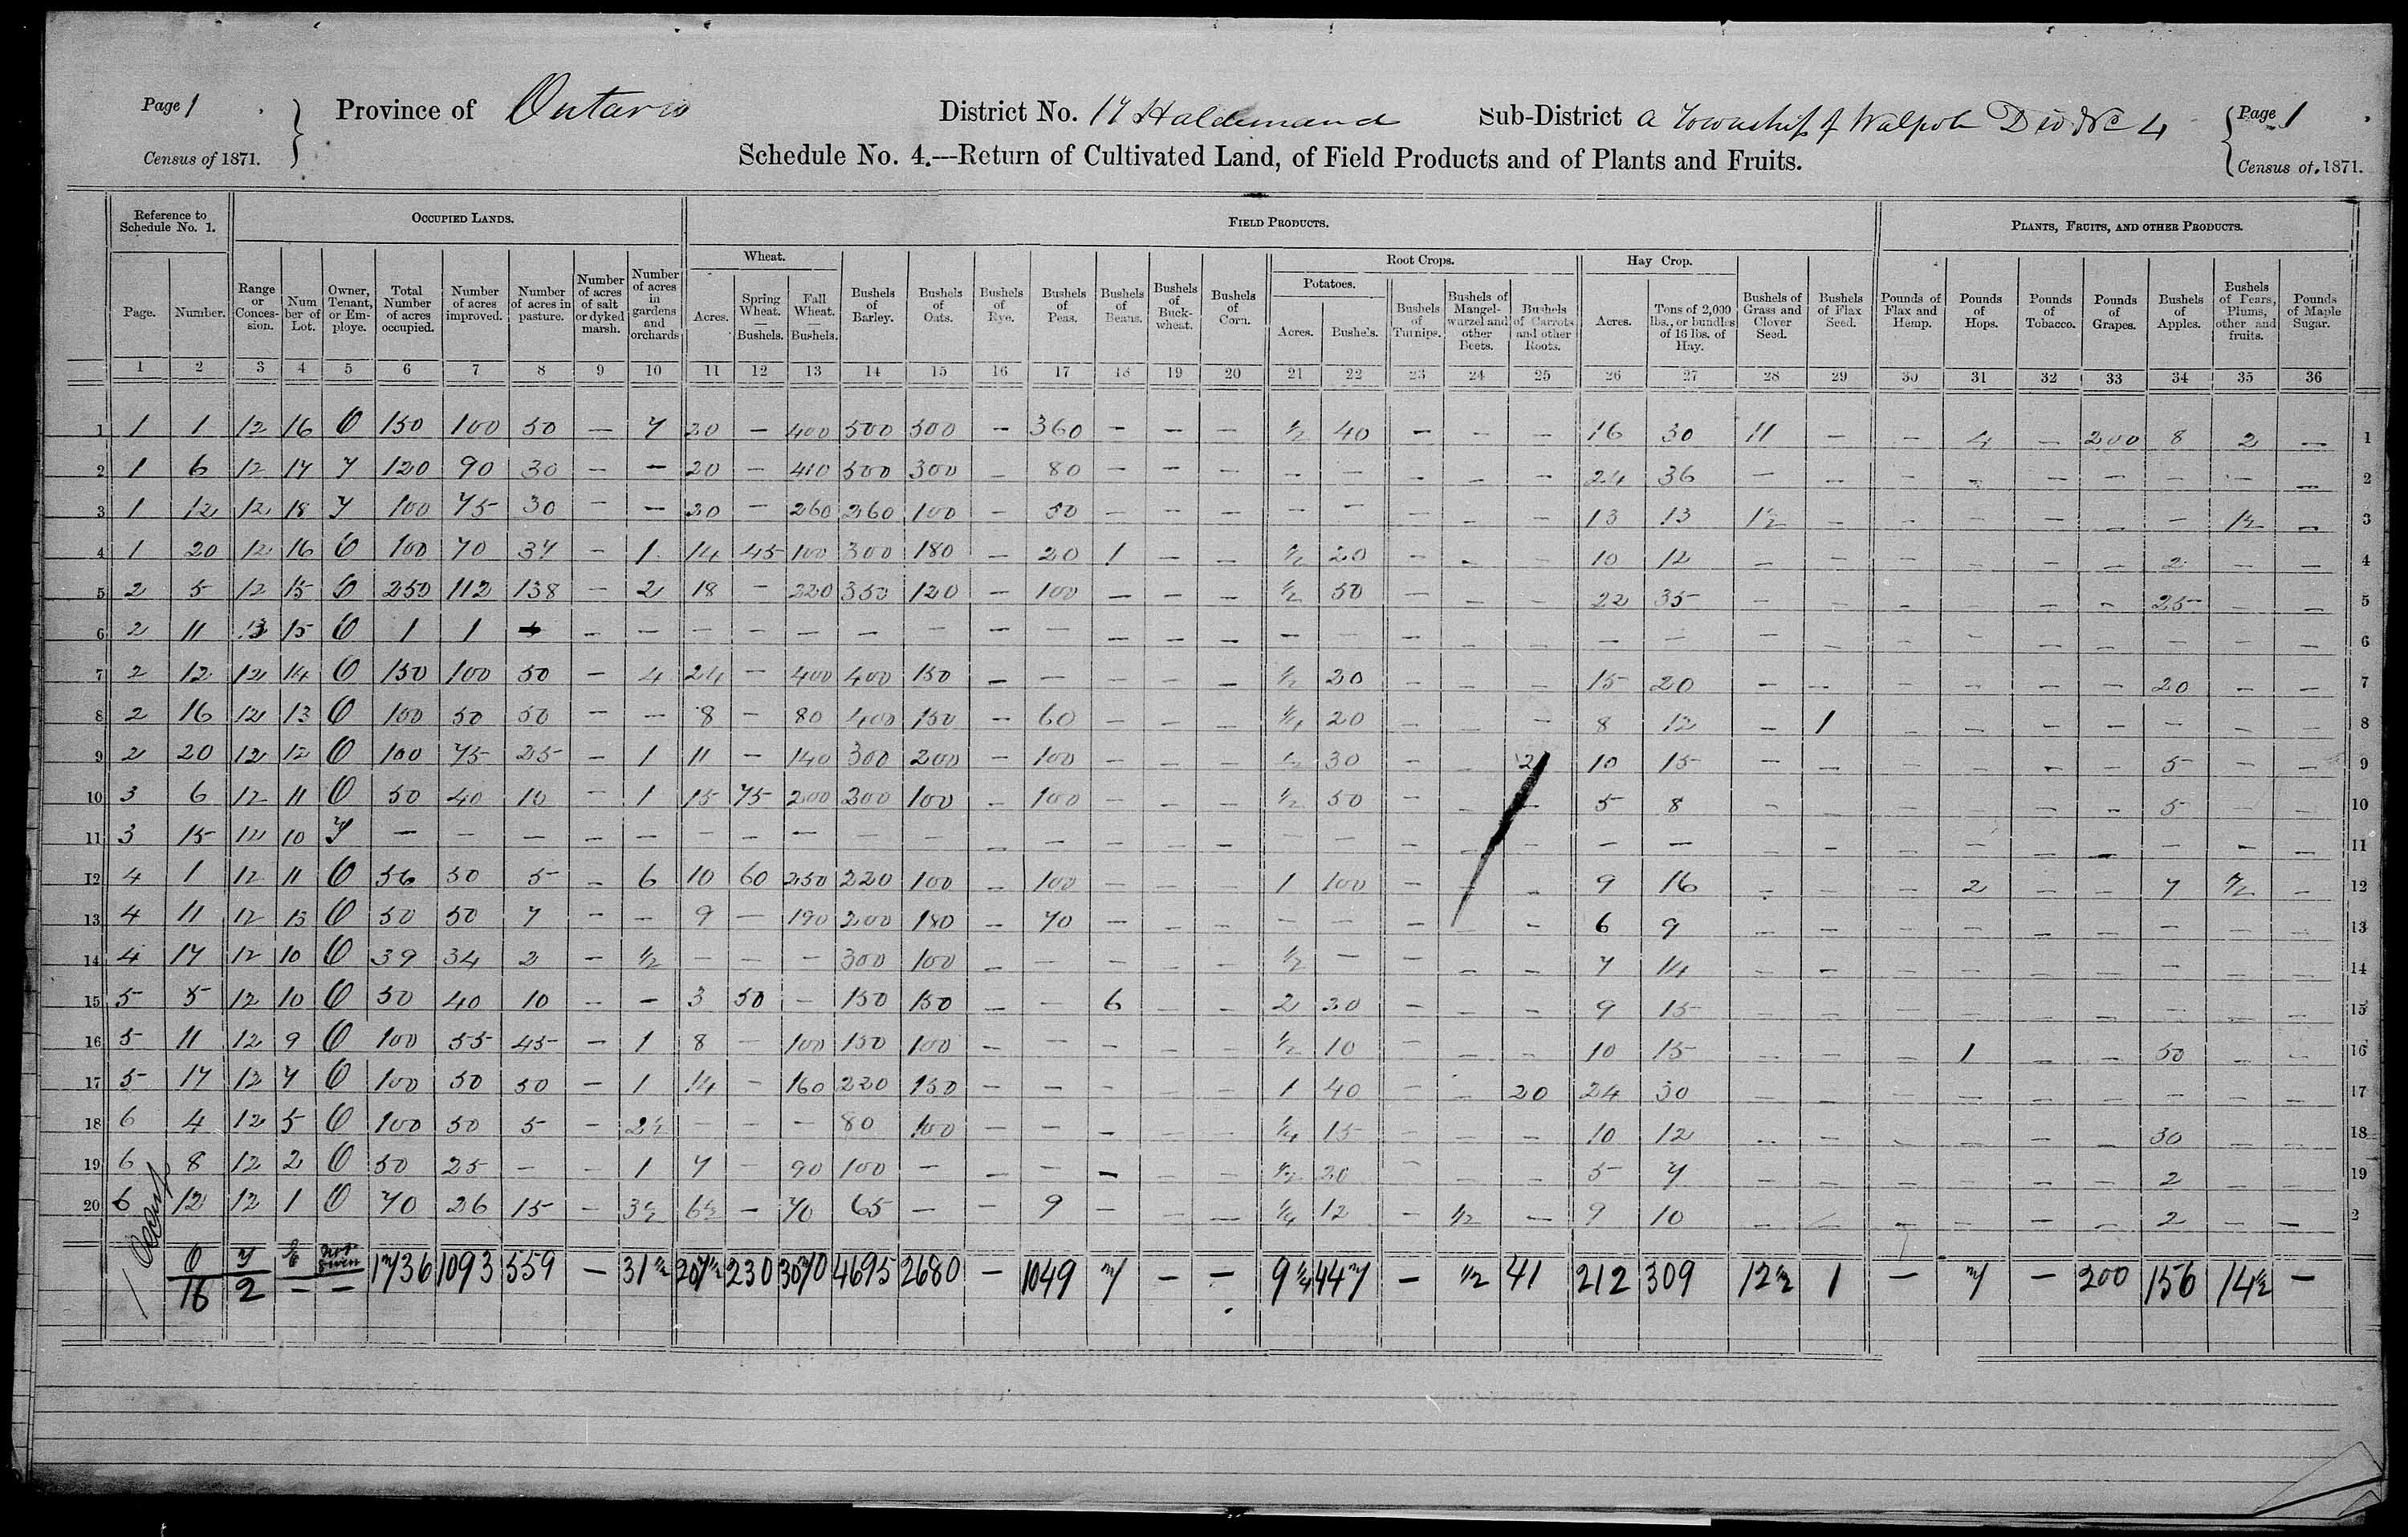 Page 1
Province of Ontario
District No. 17 Haldimand
Sub-District a Township of Walpole Div No 4
Page 1
Census of 1871.
Schedule No. 4.—Return of Cultivated Land, of Field Products and of Plants and Fruits.
Census of. 1871.
Reference to Schedule No. 1.
OCCUPIED LANDS.
FIELD PRODUCTS.
PLANTS, FRUITS, AND OTHER PRODUCTS.
Wheat.
Root Crops.
Hay Crop.
Potatoes.
Page. Number. Range or Conces-sion. Num ber of Lot. Owner, Tenant, or Em-ploye. Total Number of acres occupied. Number of acres improved. Number of acres in pasture. Number of acres of salt or dyked marsh. Number of acres in gardens and orchards Acres. Spring Wheat. — Bushels. Fall Wheat. — Bushels. Bushels of Barley. Bushels of Oats. Bushels of Rye. Bushels of Peas. Bushels of Beans. Bushels of Buck-wheat. Bushels of Corn. Acres. Bushels. Bushels of Turnips. Bushels of Mangel-wurzel and other Beets. Bushels of Carrots and other Roots. Acres. Tons of 2,000 lbs., or bundles of 16 lbs. of Hay. Bushels of Grass and Clover Seed. Bushels of Flax Seed. Pounds of Flax and Hemp. Pounds of Hops. Pounds of Tobacco. Pounds of Grapes. Bushels of Apples. Bushels of Pears, Plums, other and fruits. Pounds of Maple Sugar.
1 2 3 4 5 6 7 8 9 10 11 12 13 14 15 16 17 18 19 20 21 22 23 24 25 26 27 28 29 30 31 32 33 34 35 36
1 1 1 12 16 O 150 100 50 — 7 30 — 400 500 500 — 360 — — — ½ 40 — — — 16 30 11 — — 4 — 200 8 2 — 1
2 1 6 12 17 T 120 90 30 — — 20 — 410 500 300 — 80 — — — — — — — — 24 36 — — — — — — — — — 2
3 1 12 12 18 T 100 75 30 — — 20 — 260 260 100 — 50 — — — — — — — — 13 13 1½ — — — — — — — 3
4 1 20 12 16 O 100 70 37 — 1 14 45 100 300 180 — 20 1 — — ½ 20 — — — 10 12 — — — — — — 2 — — 4
5 2 5 12 15 O 250 112 138 — 2 18 — 220 350 120 — 100 — — — ½ 50 — — — 22 35 — — — — — 25 — — 5
6 2 11 13 15 O 1 1 — — — — — — — — — — — — — — — — — — — — — — — — — — — — 6
7 2 12 12 14 O 150 100 50 — 4 24 — 400 400 150 — — — — — ½ 30 — — — 15 20 — — — — — — 20 — — 7
8 2 16 12 13 O 100 50 50 — — 8 — 80 400 150 — 60 — — — ¼ 20 — — — 8 12 — 1 — — — — — — — 8
9 2 20 12 12 O 100 75 25 — 1 11 — 140 300 200 — 100 — — — ½ 30 — — 10 15 — — — — — — 5 — — 9
10 3 6 12 11 O 50 40 10 — 1 15 75 200 300 100 — 100 — — — ½ 50 — — — 5 8 — — — — — — 5 — — 10
11 3 15 12 10 T — — — — — — — — — — — — — — — — — — — — — — — — — — — — — — — 11
12 4 1 12 11 O 56 50 5 — 6 10 60 250 220 100 — 100 — — — 1 100 — — — 9 16 — — — 2 — — 7 — 12
13 4 11 12 13 O 50 50 7 — — 9 — 190 200 180 — 70 — — — — — — — — 6 9 — — — — — — — — — 13
14 4 17 12 10 O 39 34 2 — ½ — — — 300 100 — — — — — ½ — — — — 7 14 — — — — — — — — — 14
15 5 5 12 10 O 50 40 10 — — 3 50 — 150 150 — — 6 — — 2 30 — — — 9 15 — — — — — — — — — 15
16 5 11 12 9 O 100 55 45 — 1 8 — 100 150 100 — — — — — ½ 10 — — — 10 15 — — — 1 — — 50 — — 16
17 5 17 12 7 O 100 50 50 — 1 14 — 160 220 150 — — — — — 1 40 — — 20 24 30 — — — — — — — — — 17
18 6 4 12 5 O 100 50 5 — 2½ — — — 80 100 — — — — — ¼ 15 — — — 10 12 — — — — — — 30 — — 18
19 6 8 12 2 O 50 25 — — 1 7 — 90 100 — — — — — — ½ 20 — — — 5 7 — — — — — — 2 — — 19
20 6 12 12 1 O 70 26 15 — 3½ 6½ — 70 65 — — 9 — — — ¼ 12 — ½ — 9 10 — — — — — — 2 — — 2
O T E not given 1736 1093 559 — 31½ 207½ 230 3070 4695 2680 — 1049 7 — — 9¼ 447 — ½ 41 212 309 12½ 1 — 7 — 200 156 14½ —
16 2 — —